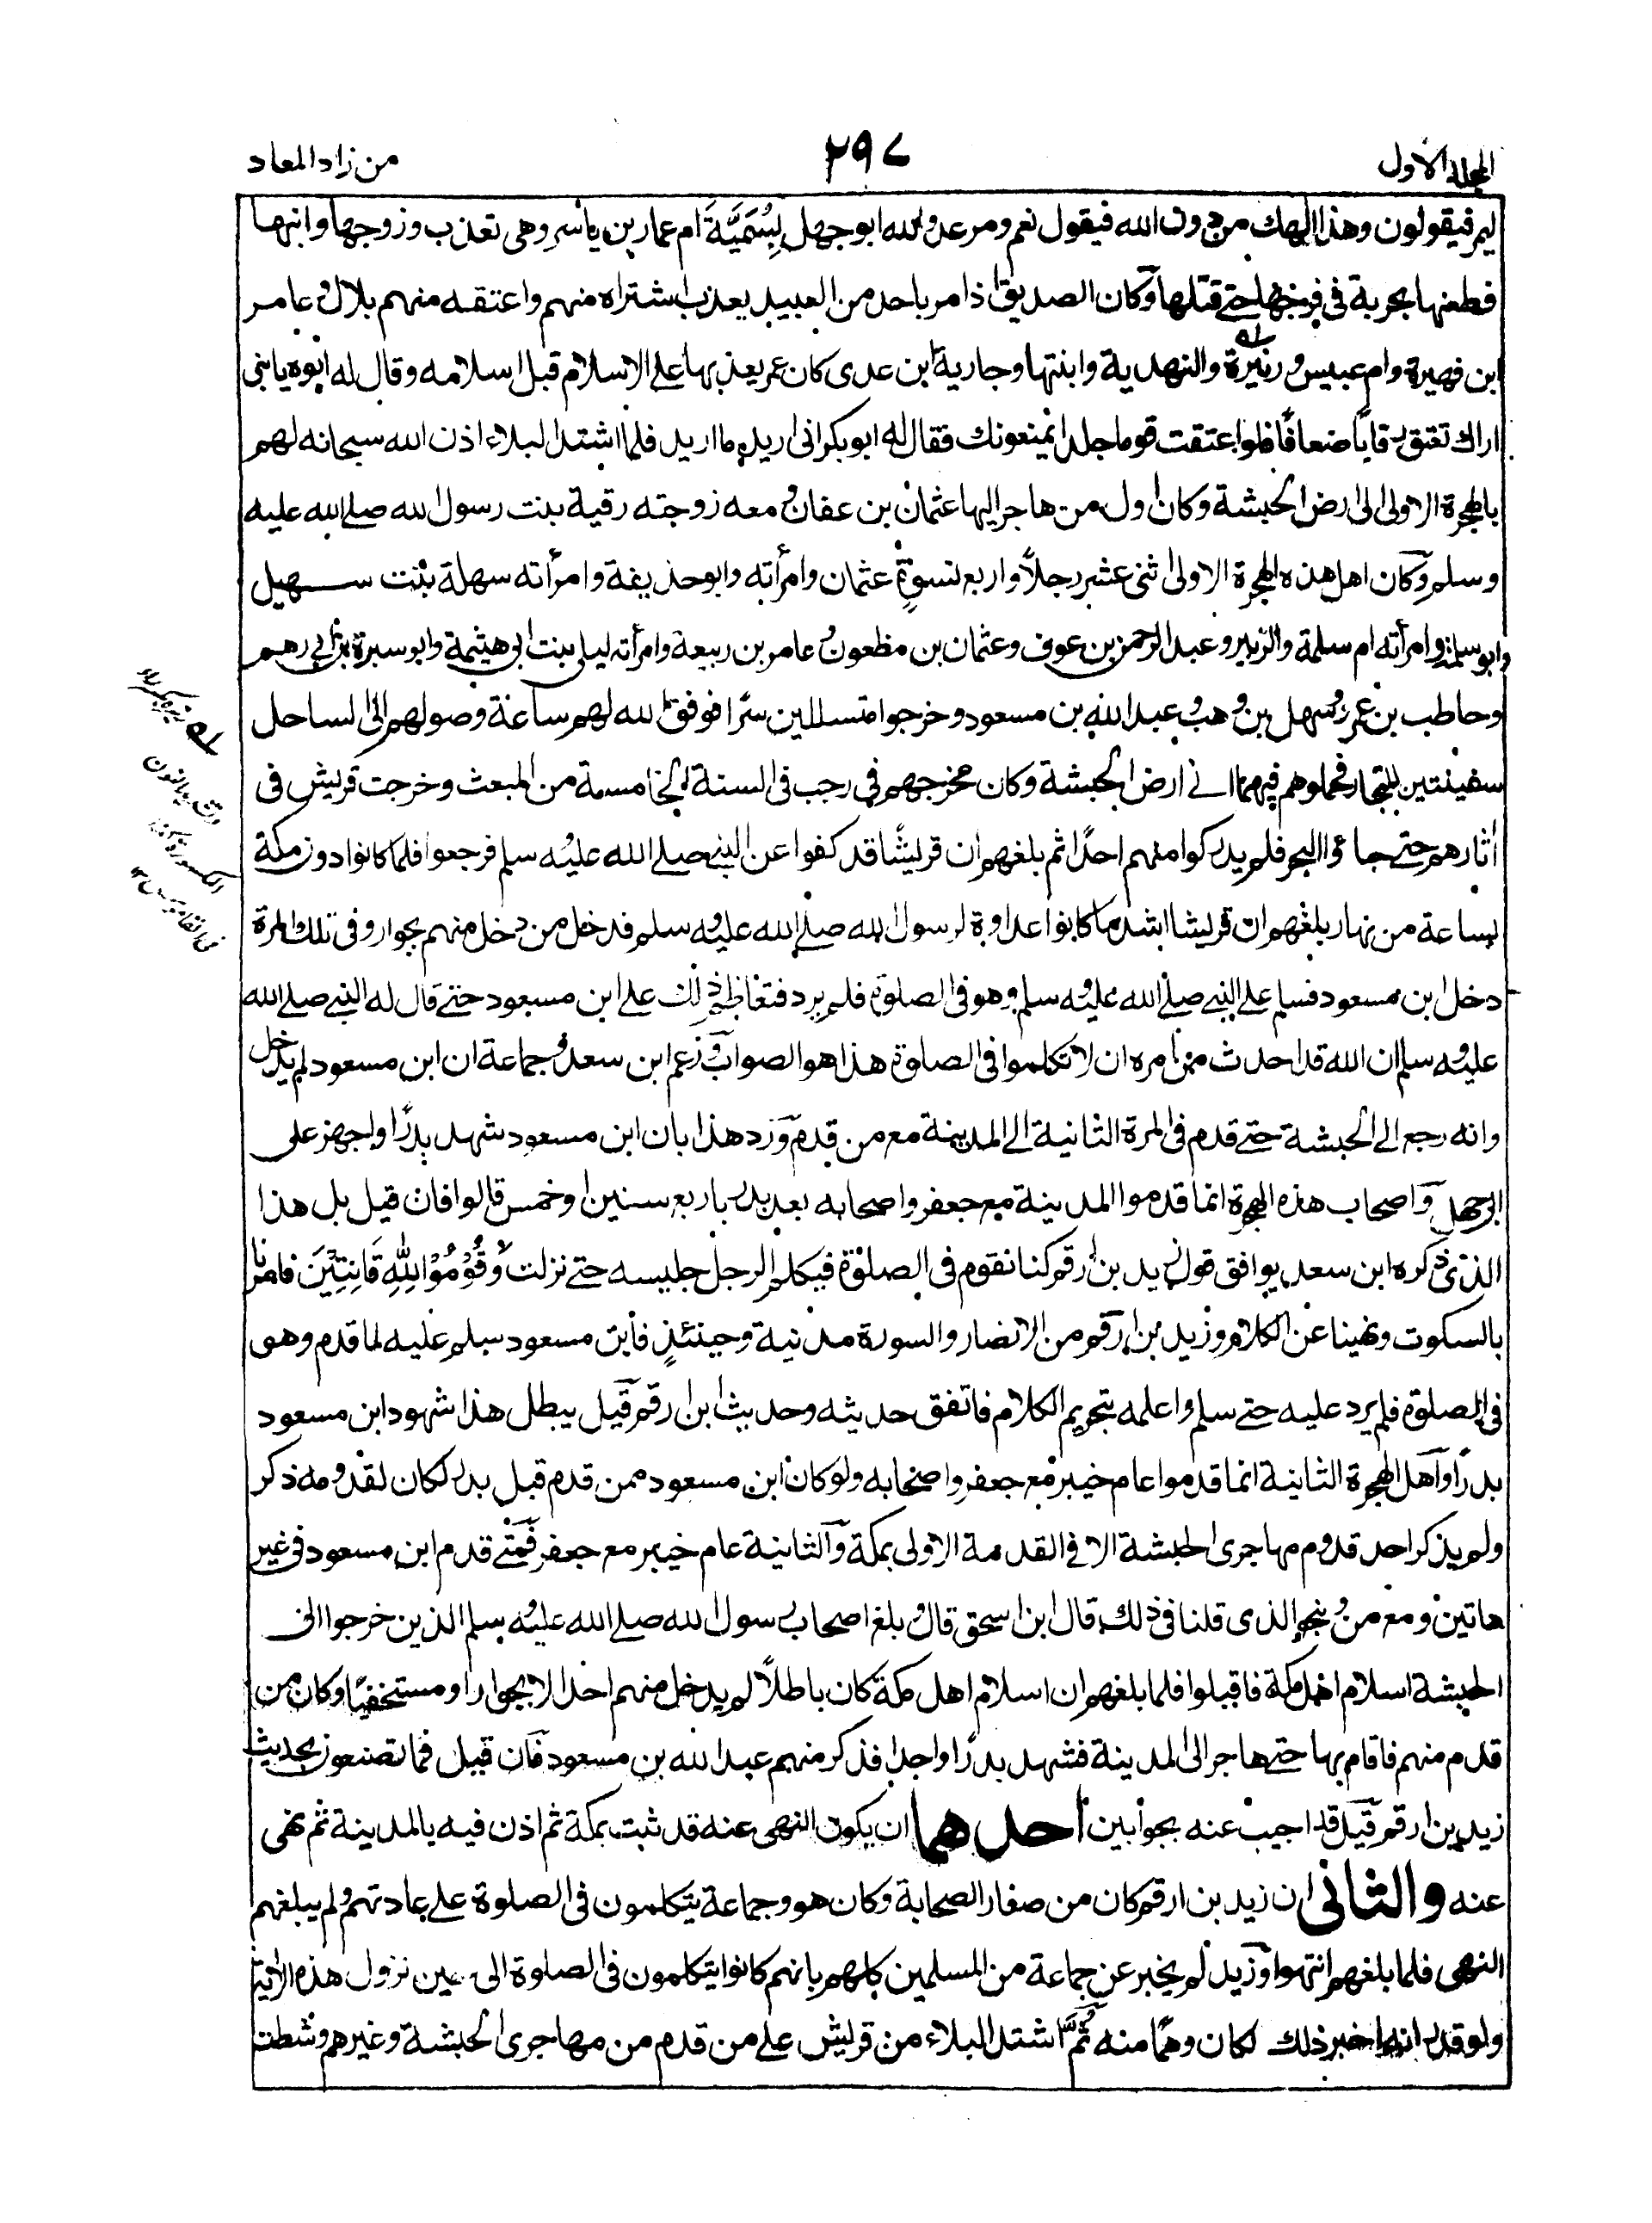 المجلد الاول
٢٩٧
من زاد المعاد
ليمر فيقولون وهذا الهك من دون الله فيقول نعم ومر عدو الله ابو جهل بِسُمَيَّةَ ام عمار بن ياسر وهى تعذب وزوجها وابنها
فطعنها بحربة فى فرجها حتے قتلها وكان الصديق اذا مر باحد من العبيد يعذب اشتراه منهم واعتقه منهم بلال وعامر
ابن فهيرة وام عبيس و زنيرة والنهدية وابنتها وجارية ابن عدى كان عمر يعذبها علے الاسلام قبل اسلامه وقال له ابوه يابنى
اراك تعتق رقابًا ضعافًا فلو اعتقت قوما جلدا يمنعونك فقال له ابو بكر انى اريد ما اريد فلما اشتد البلاء اذن الله سبحانه لهم
بالهجرة الاولى الى ارض الحبشة وكان اول من هاجر اليها عثمان بن عفان و معه زوجته رقية بنت رسول الله صلے الله عليه
وسلم وكان اهل هذه الهجرة الاولى اثنى عشر رجلاً واربع نسوةٍ عثمان وامرأته وابو حذيفة وامرأته سهلة بنت سهيل
وابو سلمة وامرأته ام سلمة والزبير وعبد الرحمن بن عوف وعثمان بن مظعون و عامر بن ربيعة وامرأته ليلى بنت ابى هيثمة وابو سبرة بن ابى رهم
وحاطب بن عمرو وسهل بن وهب و عبد الله بن مسعود وخرجوا متسللين سرًا فوفق الله لهم ساعة وصولهم الى الساحل
سفينتين للتجار فحملوهم فيهما الے ارض الحبشة وكان مخرجهم فى رجب فى السنة الخامسة من المبعث وخرجت قريش فى
اٰثارهم حتے جاءوا البحر فلم يدركوا منهم احدًا ثم بلغهم ان قريشًا قد كفوا عن النبے صلے الله عليه وسلم فرجعوا فلما كانوا دون مكة
بساعة من نهار بلغهم ان قريشا اشد ما كانوا عداوة لرسول الله صلے الله عليه وسلم فدخل من دخل منهم بجوار وفى تلك المرة
دخل ابن مسعود فسلم علے النبے صلے الله عليه وسلم وهو فى الصلوة فلم يرد فتعاظم ذلك علے ابن مسعود حتے قال له النبے صلے الله
عليه وسلم ان الله قد احدث من امره ان لا تكلموا فى الصلوة هذا هو الصواب وزعم ابن سعد و جماعة ان ابن مسعود لم يدخل
وانه رجع الے الحبشة حتے قدم فى المرة الثانية الے المدينة مع من قدم ورد هذا بان ابن مسعود شهد بدرًا واجهز على
ابى جهل واصحاب هذه الهجرة انما قدموا المدينة مع جعفر واصحابه بعد بدر باربع سنين او خمس قالوا فان قيل بل هذا
الذى ذكره ابن سعد يوافق قول زيد بن ارقم كنا نقوم فى الصلوٰة فيكلم الرجل جليسه حتے نزلت وَقُوْمُوْا لِلّٰهِ قَانِتِيْنَ فامرنا
بالسكوت ونهينا عن الكلام وزيد بن ارقم من الانصار والسورة مدنية وحينئذٍ فابن مسعود سلم عليه لما قدم وهو
فى الصلوة فلم يرد عليه حتے سلم واعلمه بتحريم الكلام فاتفق حديثه وحديث ابن ارقم قيل يبطل هذا شهود ابن مسعود
بدرًا واهل الهجرة الثانية انما قدموا عام خيبر مع جعفر واصحابه ولو كان ابن مسعود ممن قدم قبل بدر لكان لقدومه ذكر
ولم يذكر احد قدوم مهاجرى الحبشة الا فى القدمة الاولى بمكة والثانية عام خيبر مع جعفر فمتے قدم ابن مسعود فى غير
هاتين ومع من و بنحو الذى قلنا فى ذلك قال ابن اسحق قال و بلغ اصحاب رسول الله صلے الله عليه وسلم الذين خرجوا الى
الحبشة اسلام اهل مكة فاقبلوا فلما بلغهم ان اسلام اهل مكة كان باطلاً لم يدخل منهم احد الا بجوار او مستخفيًا وكان من
قدم منهم فاقام بها حتے هاجر الى المدينة فشهد بدرًا واحدا فذكر منهم عبد الله بن مسعود فان قيل فما تصنعون بحديث
زيد بن ارقم قيل قد اجيب عنه بجوابين احدهما ان يكون النهى عنه قد ثبت بمكة ثم اذن فيه بالمدينة ثم نهى
عنه والثانى ان زيد بن ارقم كان من صغار الصحابة وكان هو وجماعة يتكلمون فى الصلوة علے عادتهم ولم يبلغهم
النهى فلما بلغهم انتهوا وزيد لم يخبر عن جماعة من المسلمين كلهم بانهم كانوا يتكلمون فى الصلوة الى حين نزول هذه الاٰية
ولو قدر انه اخبر ذلك لكان وهمًا منه ثُمَّ اشتد البلاء من قريش علے من قدم من مهاجرى الحبشة وغيرهم وشطت